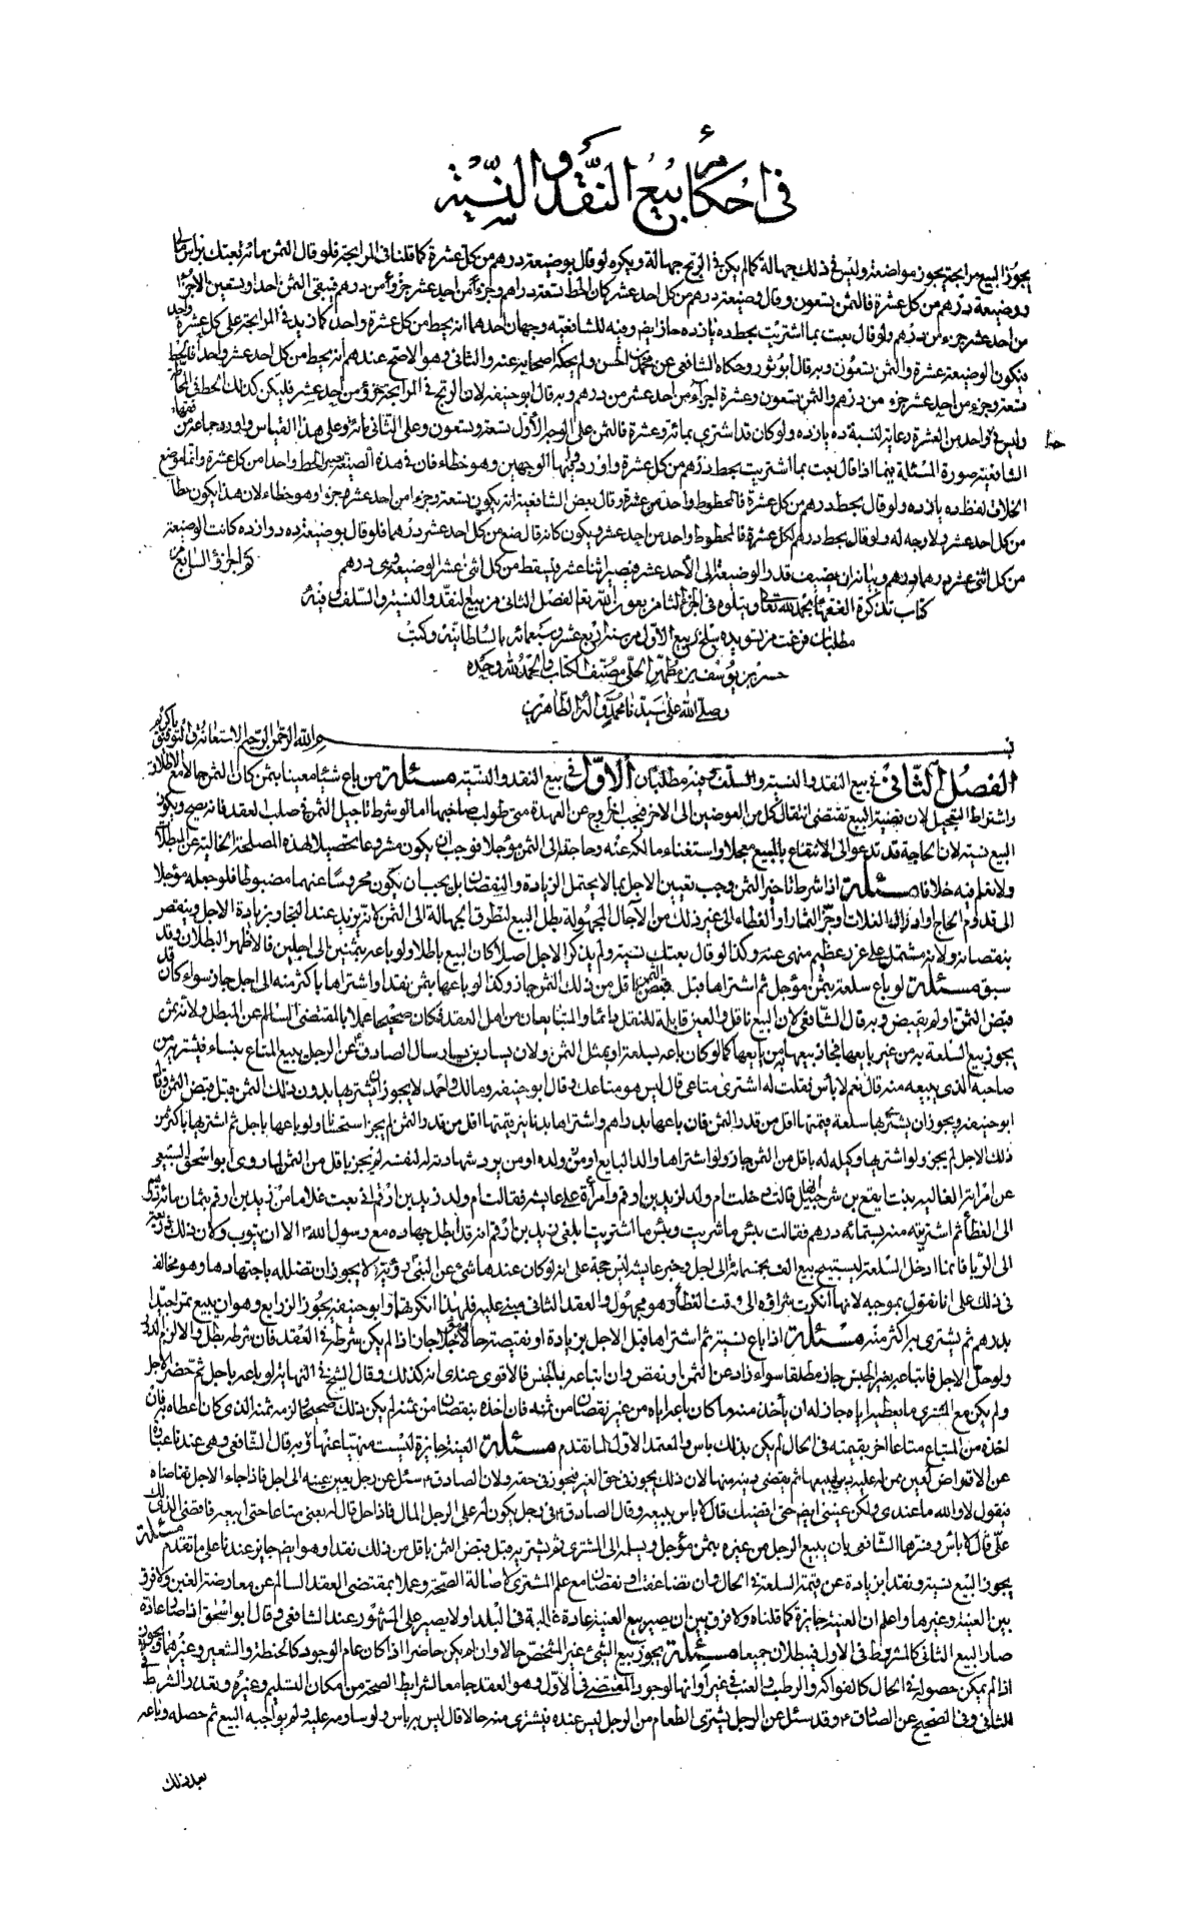 في احكام بيع النقد و النسية
يجوز البيع مرابحة يجوز مواضعة وليس في ذلك جهالة كما لم يكن في الربح جهالة ويكره لو قال بوضيعة درهم من كل عشرة كما قلنا في المرابحة فلو قال الثمن مائة بعتك براس مالي
ووضيعة درهم من كل عشرة فالثمن تسعون ولو قال وضيعة درهم من كل احد عشر كان الحط تسعة دراهم وجزءا من احد عشر جزءا من درهم فيبقى الثمن احدا وتسعين الا جزءا
من احد عشر جزء من درهم ولو قال بعت بما اشتريت بحط ده يازده جاز ايض وفيه للشافعية وجهان احدهما انه يحط من كل عشرة واحد كما زيد في المرابحة على كل عشرة واحد
فيكون الوضيعة عشرة والثمن تسعون وبه قال ابو ثور وحكاه الشافعي عن محمد بن الحسن ولم يحكه اصحابه عنه والثاني وهو الاصح عندهم انه يحط من كل احد عشر واحدا فالحط
تسعة وجزء من احد عشر جزء من درهم والثمن تسعون وعشرة اجزاء من احد عشر من درهم وبه قال ابوحنيفه لان الربح في المرابحة جزؤ من احد عشر فليكن كذلك الحط في المحاطة
وليس في واحد من العشرة رعاية لنسبة ده يازده ولو كان قد اشترى بمائة وعشرة فالثمن على الوجه الأول تسعة وتسعون وعلى الثاني مائة وعلى هذا القياس واورد جماعة من فقهاء
الشافعية صورة المسئلة فيما اذا قال بعت بما اشتريت بحط درهم من كل عشرة واوردوا فيها الوجهين وهو خطاء فان في هذه الصيغة يصير الحط واحدا من كل عشرة وانما موضع
الخلاف لفظ ده يازده ولو قال بحط درهم من كل عشرة فالمحطوط واحد من عشرة وقال بعض الشافعية انه يكون تسعة وجزءا من احد عشر جزءا وهو خطاء لان هذا يكون حطا
من كل احد عشر ولا وجه له ولو قال بحط درهم لكل عشرة فالمحطوط واحد من احد عشر ويكون كانه قال ضع من كل احد عشر درهما فلو قال بوضيعة ده دوازده كانت الوضيعة
من كل اثنى عشر درهما درهم وبيانه ان يضيف قدر الوضيعة الى الأحد عشر فيصير اثنا عشر فيسقط من كل اثنى عشر الوضيعة وهي درهم تم الجزؤ السابع من
كتاب تذكرة الفقهاء بحمد الله تعالى ويتلوه في الجزء الثامن بعون الله تعالى الفصل الثاني من بيع النقد والنسية والسلف وفيه
مطلبان فرغت من تسويده سلخ ربيع الاول من سنة اربع عشر وسبعمائه بالسلطانية وكتب
حسن بن يوسف بن مطهر الحلي مصنف الكتاب والحمد لله وحده
وصلى الله على سيدنا محمد وآله الطاهرين
بسم الله الرحمن الرحيم الاستعانة في التوفيق يا كريم
الفصل الثاني في بيع النقد والنسية والسلف وفيه مطلبان الاول في بيع النقد والنسية مسئلة من باع شيئا معينا بثمن كان الثمن حالا مع الاطلاق
واشتراط التعجيل لان قضية البيع تقتضي انتقال كل من العوضين الى الاخر فيجب الخروج عن العهدة متى طولب صاحبها اما لو شرط تاجيل الثمن في صلب العقد فانه يصح ويجوز
البيع نسية لان الحاجة قد تدعو الى الانتفاع بالمبيع معجلا واستغناء مالكه عنه وحاجته الى الثمن مؤجلا فوجب ان يكون مشروعا تحصيلا لهذه المصلحة الخالية عن المبطلات
ولا نعلم فيه خلافا مسئلة اذا شرط تاخير الثمن وجب تعيين الاجل بما لا يحتمل الزيادة والنقصان بل يجب ان يكون محروسا عنهما مضبوطا فلو جعله مؤجلا
الى قدوم الحاج او ادراك الغلات او جز الثمار او العطاء الى غير ذلك من الآجال المجهولة بطل البيع لتطرق الجهالة الى الثمن لانه يزيد عند التجار بزيادة الاجل وينقص
بنقصانه ولانه مشتمل على غرر عظيم منهي عنه وكذا لو قال بعتك نسية ولم يذكر الاجل اصلا كان البيع باطلا ولو باعه بثمنين الى اجلين فالاظهر البطلان وقد
سبق مسئلة لو باع سلعة بثمن مؤجل ثم اشتراها قبل قبض الثمن باقل من ذلك الثمن جاز وكذا لو باعها بثمن نقدا واشتراها باكثر منه الى اجل جاز سواء كان قد
قبض الثمن او لم يقبض وبه قال الشافعي لان البيع ناقل والعين قابلة للنقل وانما والمتبايعان من اهل العقد فكان صحيحا عملا بالمقتضى السالم عن المبطل ولانه ثمن
يجوز بيع السلعة به من غير بايعها فجاز بيعها من بايعها كما لو كان باعه بسلعة او بمثل الثمن ولان يسار بن يسار سال الصادق ع عن الرجل يبيع المتاع بنساء فيشتريه من
صاحبه الذي يبيعه منه قال نعم لا بأس فقلت له اشترى متاعي قال ليس هو متاعك وقال ابوحنيفه ومالك واحمد لا يجوز ان يشتريها بدون ذلك الثمن قبل قبض الثمن وقال
ابوحنيفه ويجوز ان يشتريها سلعة قيمتها اقل من قدر الثمن فان باعها بدراهم واشتراها بدنانير قيمتها اقل من قدر الثمن لم يجز استحسانا ولو باعها باجل ثم اشتريها باكثر من
ذلك الاجل لم يجز ولو اشتراها وكيله له باقل من الثمن جاز ولو اشتراها والد البايع او من ولده او من يرد شهادته له لنفسه لم يجز باقل من الثمن لما روى ابو اسحق السبيعي
عن امراته الغالية بنت ايفع بن شرحبيل قالت دخلت ام ولد لزيد بن ارقم وامرأة على عايشه فقالت ام ولد زيد بن ارقم اني بعت غلاما من زيد بن ارقم بثمان مائة درهم
الى العطا ثم اشتريته منه بستمائه درهم فقالت بئس ما شريت وبئس ما اشتريت ابلغي زيد بن ارقم انه قد ابطل جهاده مع رسول الله ص الا ان يتوب ولان ذلك ذريعة
الى الربا فانما ادخل السلعة ليستبيح بيع الف بخمسمائة الى اجل وخبر عايشه ليس حجة على انه لو كان عندها شيء عن النبي ص لا يجوز ان تضلله باجتهادها وهو مخالف
في ذلك على انا نقول بموجبه لانها انكرت شراؤه الى وقت العطاء وهو مجهول والعقد الثاني مبني عليه فلهذا انكرتهما وابوحنيفه يجوز الذرايع وهو ان يبيع تمرا جيدا
بدرهم ثم يشتري به اكثر منه مسئلة اذا باع نسية ثم اشتراها قبل الاجل بزيادة او نقيصة حالا ومؤجلا جاز اذا لم يكن شرطه في العقد فان شرطه بطل والا لزم الدور
ولو حل الاجل فابتاعه بغير الجنس جاز مطلقا سواء زاد عن الثمن او نقص وان ابتاعه بالجنس فالاقوى عندي انه كذلك وقال الشيخ في النهاية لو باعه باجل ثم حضر الاجل
ولم يكن مع المشتري ما يعطيه اياه جاز له ان يأخذ منه ما كان باعه اياه من غير نقصان من ثمنه فان اخذه بنقصان من ثمنه لم يكن ذلك صحيحا ولزمه ثمنه الذي كان اعطاه به فان
اخذه من المبتاع متاعا اخر بقيمته في الحال لم يكن بذلك باس والمعتمد الاول لما تقدم مسئلة العينة جايزة ليست منهيا عنها وبه قال الشافعي وهي عندنا عبارة
عن الاقتراض لعين ممن له عليه دين ليبيعها ثم يقضي دينه منها لان ذلك يجوز في حق الغير فيجوز في حقه ولان الصادق ع سئل عن رجل يعين عينه الى اجل فاذا جاء الاجل تقاضاه
فيقول لا والله ما عندي ولكن عينني ايض حتى اقضيك قال لا باس ببيعه وقال الصادق ع في رجل يكون له على الرجل المال فاذا حل قال له بعني متاعا حتى ابيعه فاقضي الذي لك
علي قال لا بأس وفسرها الشافعي بان يبيع الرجل من غيره بثمن مؤجل ويسلمه الى المشتري ثم يشتريه قبل قبض الثمن باقل من ذلك نقدا وهو ايض جايز عندنا على ما تقدم مسئلة
يجوز البيع نسية ونقدا بزيادة عن قيمة السلعة في الحال وان تضاعفت او نقصان مع علم المشتري لاصالة الصحة وعملا بمقتضى العقد السالم عن معارضة الغبن ولا فرق
بين العينة وغيرها واعلم ان العينة جايزة كما قلناه ولا فرق بين ان يصير بيع العينة عادة غالبة في البلد او لا يصير على المشهور عند الشافعي وقال ابو اسحق اذا صار عادة
صار البيع الثاني كالمشروط في الاول فيبطلان جميعا مسئلة يجوز بيع الشيء غير المشخص حالا وان لم يكن حاضرا اذا كان عام الوجود كالحنطة والشعير وغيرهما ولا يجوز
اذا لم يمكن حصوله في الحال كالفواكه والرطب والعنب في غير اوانها لوجود المقتضي في الاول وهو العقد جامعا لشرايط الصحة من امكان التسليم وغيره وفقد الشرط في
الثاني وفي الصحيح عن الصادق ع وقد سئل عن الرجل يشتري الطعام من الرجل ليس عنده فيشتري منه حالا قال ليس به باس ولو ساومه عليه ولم يواجبه البيع ثم حصله وباعه
بعد ذلك